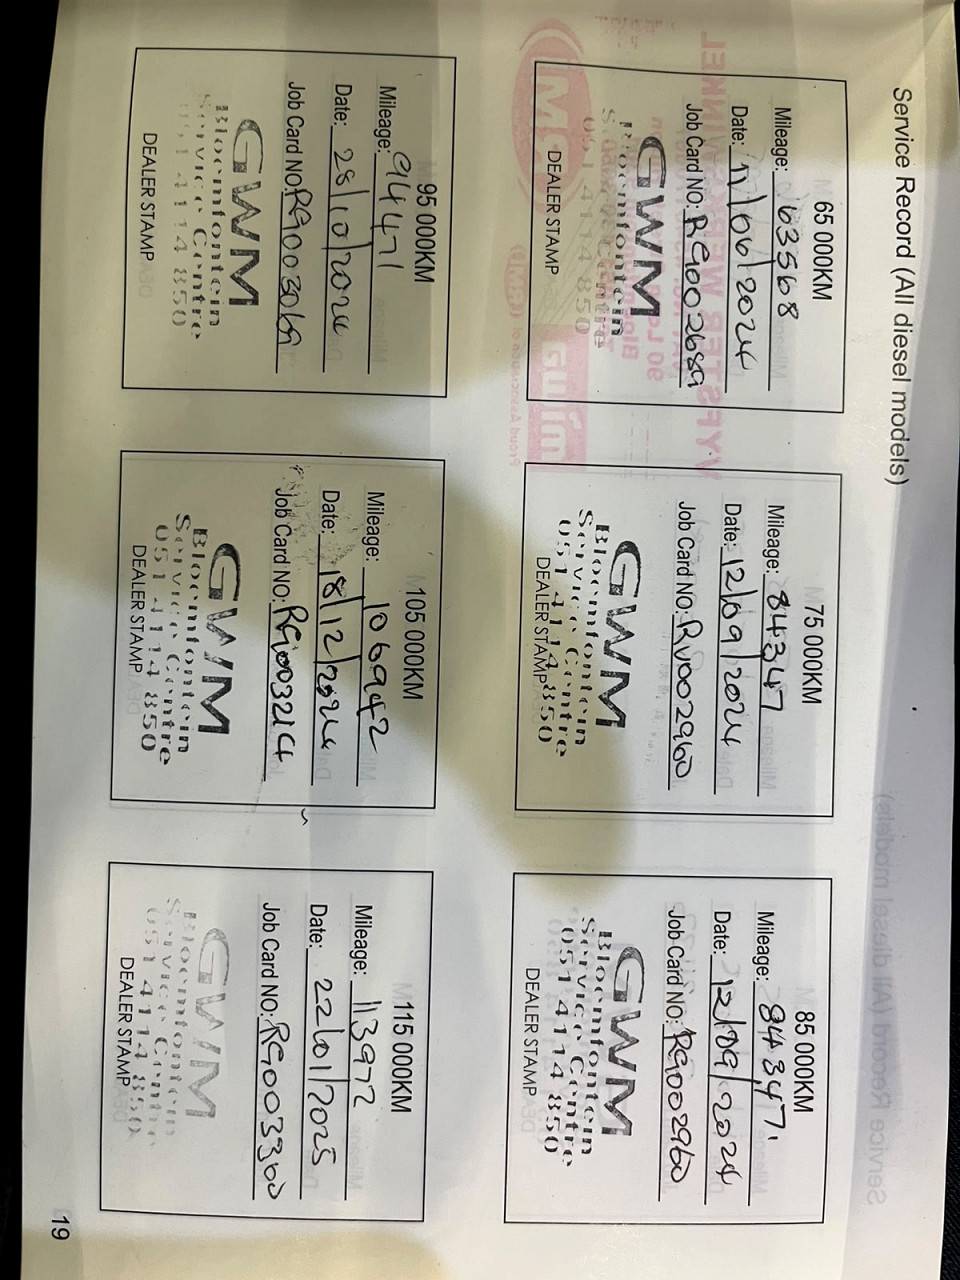 Service Record (All diesel models)
65 000KM
Mileage: 63568
Date: 11/06/2024
Job Card NO: RG002689
GWM
Bloemfontein
Service Centre
051 4114 850
DEALER STAMP
75 000KM
Mileage: 84347
Date: 12/09/2024
Job Card NO: RV002960
GWM
Bloemfontein
Service Centre
051 4114 850
DEALER STAMP
85 000KM
Mileage: 84347.
Date: 12/09/2024
Job Card NO: RG002960
GWM
Bloemfontein
Service Centre
051 4114 850
DEALER STAMP
95 000KM
Mileage: 94471
Date: 28/10/2024
Job Card NO: RG003069
GWM
Bloemfontein
Service Centre
051 4114 850
DEALER STAMP
105 000KM
Mileage: 106942
Date: 18/12/2024
Job Card NO: RG003214
GWM
Bloemfontein
Service Centre
051 4114 850
DEALER STAMP
115 000KM
Mileage: 113972
Date: 22/01/2025
Job Card NO: RG003300
GWM
Bloemfontein
Service Centre
051 4114 850
DEALER STAMP
19